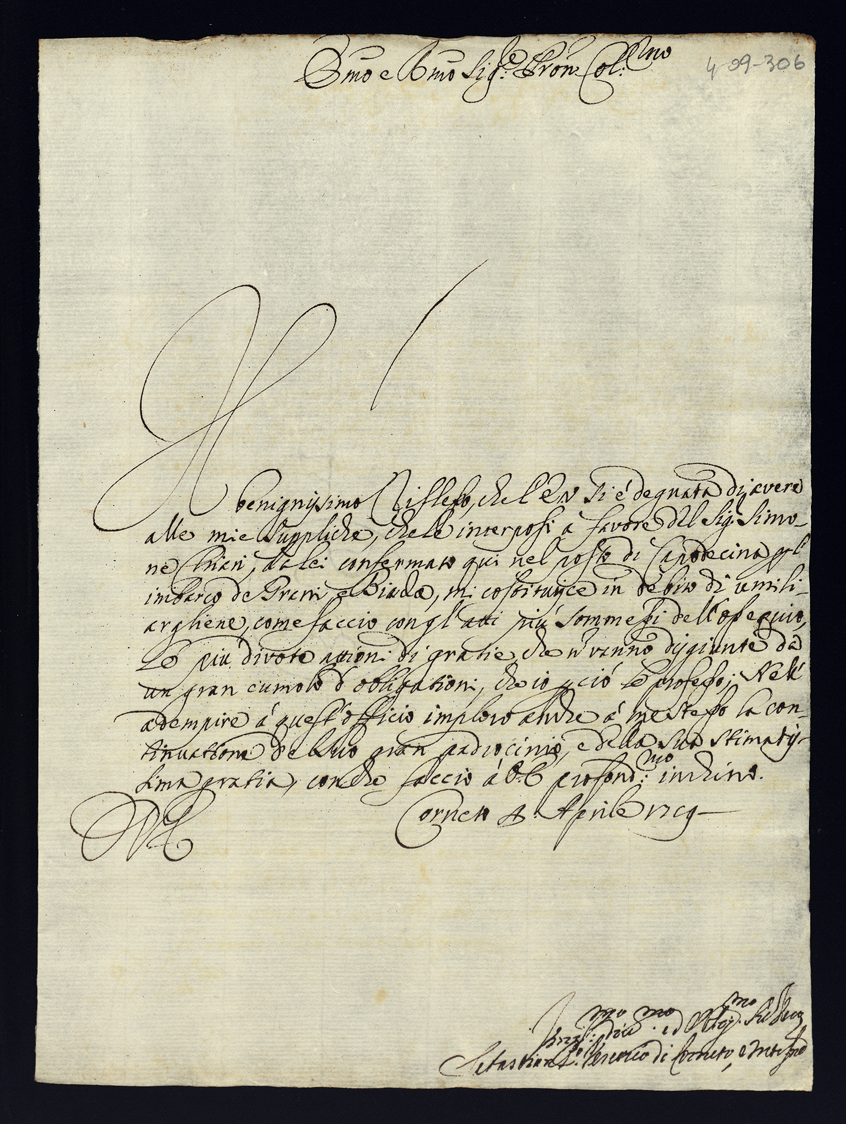 Emo e Rmo Sig.re Pron Col.mo
4-09-306
Il
benignissimo Riflesso, che l'E V si é degnata di avere
alle mie suppliche, che le interposi a favore del Sig. Simo-
ne, da lei confermato qui nel posto di Capodecina p l
imbarco de Grani, e Biade, mi costituisce in debito di umili-
argliene, come faccio con gl'atti piú sommessi dell'ossequio,
Le piú divote attioni di gratie, che vanno disgiunte dá
un gran cumulo d'obligationi, che io p ció le professo; Nell'
adempire á quest'officio imploro anche á me stesso la con-
tinuatione del suo gran padrocinio, e della sua stimatis-
sima gratia, con che faccio á V E profond.mo inchino.
Corneto 8 Aprile 1729
di V E
Sebastiano Vescovo di Corneto, e Montef.